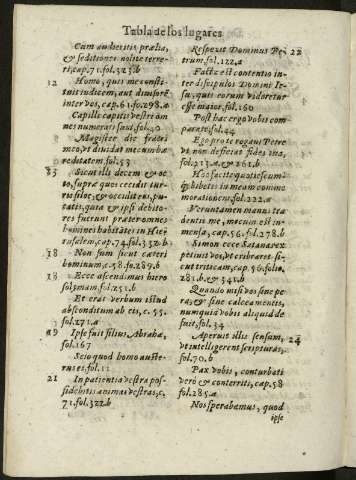 Tabla de los lugares
Cum audieritis prælia,
& seditiones nolite terre-
ri, cap. 71. fol. 323. b
12 Homo, quis me consti-
tuit iudicem, aut diuisorē
inter vos, cap. 61. fo. 298. a
Capilli capitis vestri om-
nes numerati sunt fol. 40
Magister dic fratri
meo, vt diuidat mecum hæ
reditatem fol. 53
Sicut illi decem & oc-
to, supra quos cecidit tur-
ris siloe, & occidit eos, pu-
tatis, quia & ipsi debito-
res fuerunt præter omnes
homines habitātes in Hie-
rusalem, cap. 74. fol. 332. b
18 Non sum sicut cæteri
hominum, c. 58. fo. 289. b
18 Ecce ascendimus hiero
solimam fol. 251. b
Et erat verbum istud
absconditum ab eis, c. 55.
fol. 271. a
19 Ipse fuit filius Abrahæ,
fol. 167
Scio quod homo auste-
rus es. fol. 11
21 In patientia vestra pos-
sidebitis animas vestras, c.
71. fol. 322. b
Respexit Dominus Pe- 22
trum. fol. 122. a
Facta est contentio in-
ter discipulos Domini Ie-
su, quis eorum videretur
esse maior. fol. 160
Post hac ergo vobis com-
parate. fol. 44
Ego pro te rogaui Petre
vt non deficiat fides tua,
fol. 213. a, & 261. b
Hoc facite quotiescumq̄
bibetis in meam commo
rationem. fol. 222. a
Verumtamen manus tra
dentis me, mecum est in
mensa, cap. 56. fol. 278. b
Simon ecce Satanas ex
petiuit vos, vt cribraret si-
cut triticum, cap. 56. folio,
281. b. & 341. b
Quando misi vos sine pe
ra, & sine calceamentis,
nunquid vobis aliquid de
fuit, fol. 34
Aperuit illis sensum, 24
vt intelligerent scripturas,
fol. 70. b
Pax vobis, conturbati
verò & conterriti, cap. 58
fol. 285. a
Nos sperabamus, quod
ipse